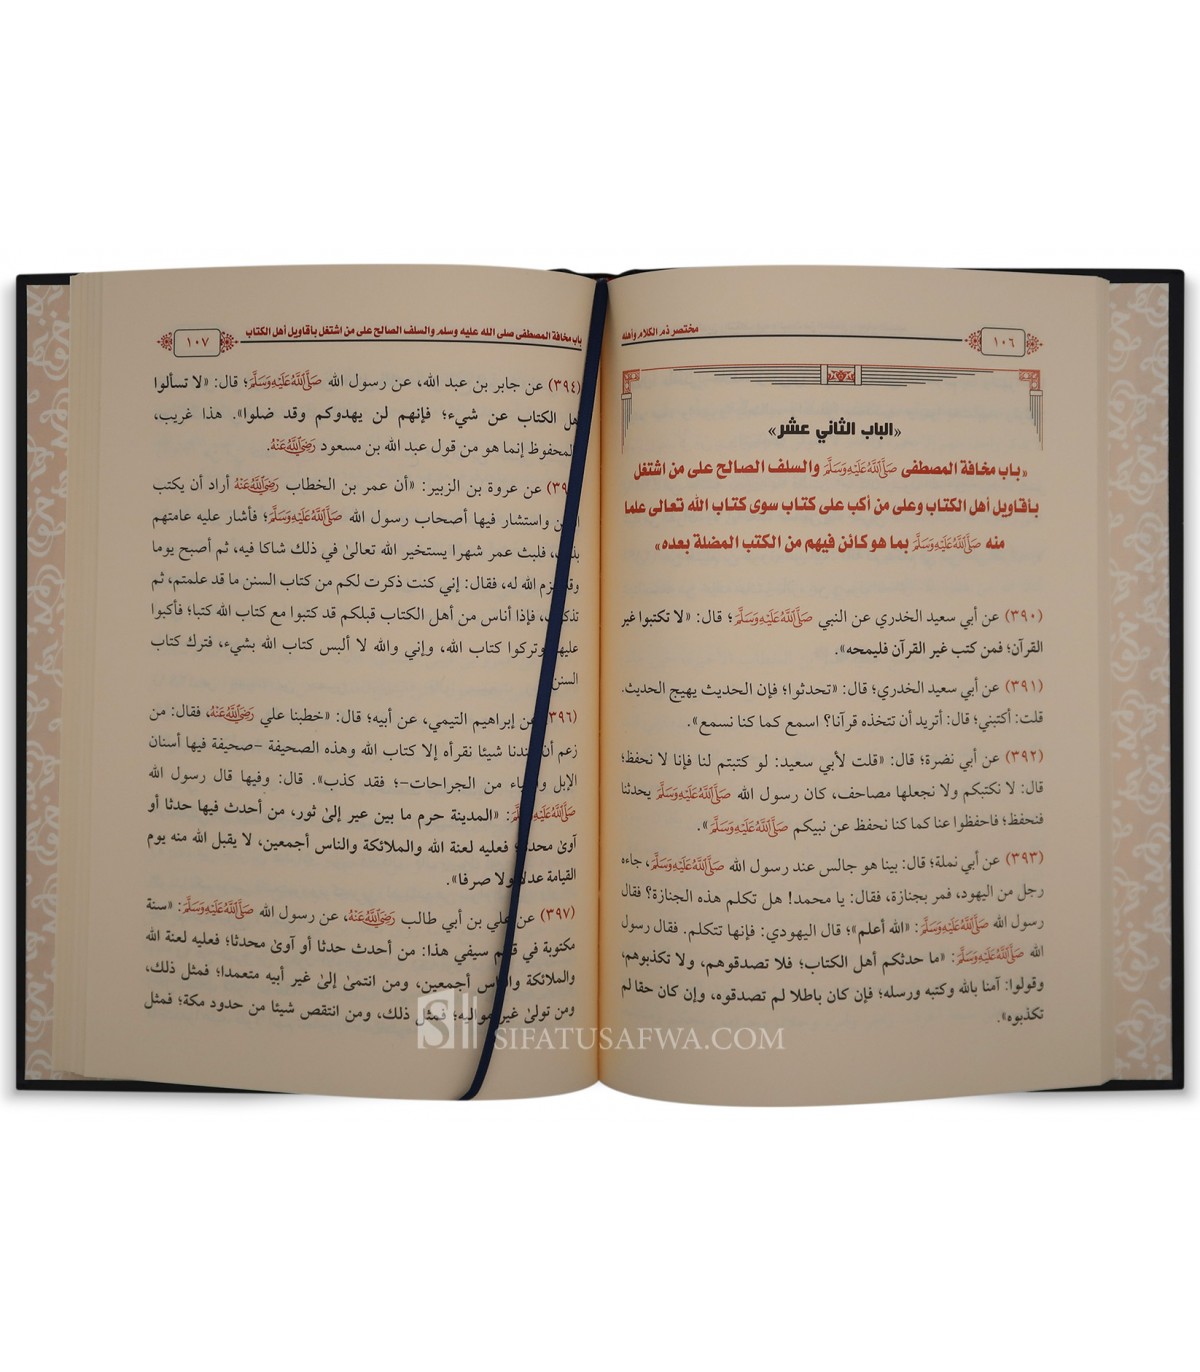 مختصر ذم الكلام وأهله
١٠٦
«الباب الثاني عشر»
«باب مخافة المصطفى صَلَّىٰاللَّهُعَلَيْهِوَسَلَّمَ والسلف الصالح على من اشتغل
بأقاويل أهل الكتاب وعلى من أكب على كتاب سوى كتاب الله تعالى علما
منه صَلَّىٰاللَّهُعَلَيْهِوَسَلَّمَ بما هو كائن فيهم من الكتب المضلة بعده»
(٣٩٠) عن أبي سعيد الخدري عن النبي صَلَّىٰاللَّهُعَلَيْهِوَسَلَّمَ؛ قال: «لا تكتبوا غير
القرآن؛ فمن كتب غير القرآن فليمحه».
(٣٩١) عن أبي سعيد الخدري؛ قال: «تحدثوا؛ فإن الحديث يهيج الحديث.
قلت: أكتبني؛ قال: أتريد أن تتخذه قرآنا؟ اسمع كما كنا نسمع».
(٣٩٢) عن أبي نضرة؛ قال: «قلت لأبي سعيد: لو كتبتم لنا فإنا لا نحفظ؛
قال: لا نكتبكم ولا نجعلها مصاحف، كان رسول الله صَلَّىٰاللَّهُعَلَيْهِوَسَلَّمَ يحدثنا
فنحفظ؛ فاحفظوا عنا كما كنا نحفظ عن نبيكم صَلَّىٰاللَّهُعَلَيْهِوَسَلَّمَ».
(٣٩٣) عن أبي نملة؛ قال: بينا هو جالس عند رسول الله صَلَّىٰاللَّهُعَلَيْهِوَسَلَّمَ، جاءه
رجل من اليهود، فمر بجنازة، فقال: يا محمد! هل تكلم هذه الجنازة؟ فقال
رسول الله صَلَّىٰاللَّهُعَلَيْهِوَسَلَّمَ: «الله أعلم»؛ قال اليهودي: فإنها تتكلم. فقال رسول
الله صَلَّىٰاللَّهُعَلَيْهِوَسَلَّمَ: «ما حدثكم أهل الكتاب؛ فلا تصدقوهم، ولا تكذبوهم،
وقولوا: آمنا بالله وكتبه ورسله؛ فإن كان باطلا لم تصدقوه، وإن كان حقا لم
تكذبوه».
باب مخافة المصطفى صلى الله عليه وسلم والسلف الصالح على من اشتغل بأقاويل أهل الكتاب
١٠٧
(٣٩٤) عن جابر بن عبد الله، عن رسول الله صَلَّىٰاللَّهُعَلَيْهِوَسَلَّمَ؛ قال: «لا تسألوا
أهل الكتاب عن شيء؛ فإنهم لن يهدوكم وقد ضلوا». هذا غريب،
المحفوظ إنما هو من قول عبد الله بن مسعود رَضِيَاللَّهُعَنْهُ.
عن عروة بن الزبير: «أن عمر بن الخطاب رَضِيَاللَّهُعَنْهُ أراد أن يكتب
واستشار فيها أصحاب رسول الله صَلَّىٰاللَّهُعَلَيْهِوَسَلَّمَ؛ فأشار عليه عامتهم
فلبث عمر شهرا يستخير الله تعالىٰ في ذلك شاكا فيه، ثم أصبح يوما
الله له، فقال: إني كنت ذكرت لكم من كتاب السنن ما قد علمتم، ثم
فإذا أناس من أهل الكتاب قبلكم قد كتبوا مع كتاب الله كتبا؛ فأكبوا
وتركوا كتاب الله، وإني والله لا ألبس كتاب الله بشيء، فترك كتاب
السنن
(٣٩٦) عن إبراهيم التيمي، عن أبيه؛ قال: «خطبنا علي رَضِيَاللَّهُعَنْهُ، فقال: من
زعم أن عندنا شيئا نقرأه إلا كتاب الله وهذه الصحيفة -صحيفة فيها أسنان
الإبل من الجراحات-؛ فقد كذب». قال: وفيها قال رسول الله
صَلَّىٰاللَّهُعَلَيْهِوَسَلَّمَ: «المدينة حرم ما بين عير إلىٰ ثور، من أحدث فيها حدثا أو
آوىٰ محدثا؛ فعليه لعنة الله والملائكة والناس أجمعين، لا يقبل الله منه يوم
القيامة عدلا ولا صرفا».
(٣٩٧) عن علي بن أبي طالب رَضِيَاللَّهُعَنْهُ، عن رسول الله صَلَّىٰاللَّهُعَلَيْهِوَسَلَّمَ: «سنة
مكتوبة في سيفي هذا: من أحدث حدثا أو آوىٰ محدثا؛ فعليه لعنة الله
والملائكة والناس أجمعين، ومن انتمىٰ إلىٰ غير أبيه متعمدا؛ فمثل ذلك،
ومن تولىٰ غير مواليه؛ فمثل ذلك، ومن انتقص شيئا من حدود مكة؛ فمثل
SIFATUSAFWA.COM